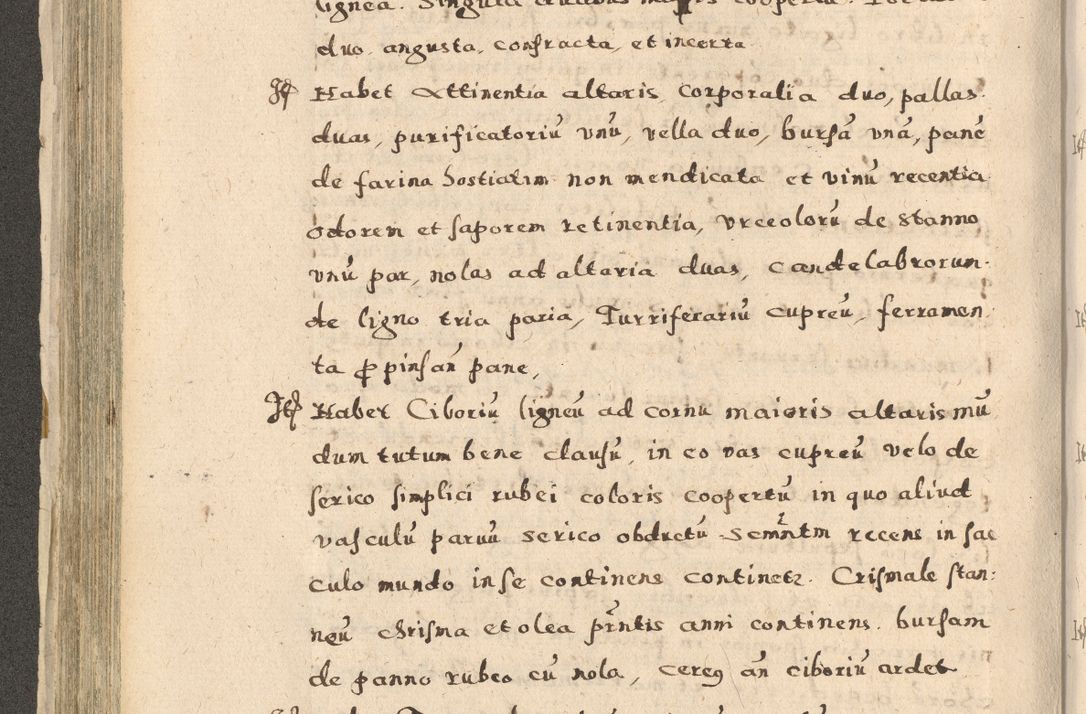 lignea. Singula duabus mappis cooperta.
duo angusta, confracta, et incerta
Itp Habet Attinentia altaris, corporalia duo, pallas
duas, purificatoriū vnū, vella duo, bursā vnā, panē
de farina hostiatim non mendicata et vinū recentia
odorem et saporem retinentia, vrceolorū de stanno
vnū par, nolas ad altaria duas, candelabrorum
de ligno tria paria, Turriferariū cupreū, ferramen
ta ꝓ pinsan̄ pane,
Itp Habet Ciboriū ligneū ad cornu maioris altaris mū
dum tutum bene clausū, in eo vas cupreū velo de
serico simplici rubei coloris coopertū in quo aliud
vasculū paruū serico obductū Scmntm recens in sac
culo mundo in se continens continetr. Crismale stan:
neū chrisma et olea prntis anni continens. bursam
de panno rubeo cū nola, cereꝰ an̄ ciboriū ardet